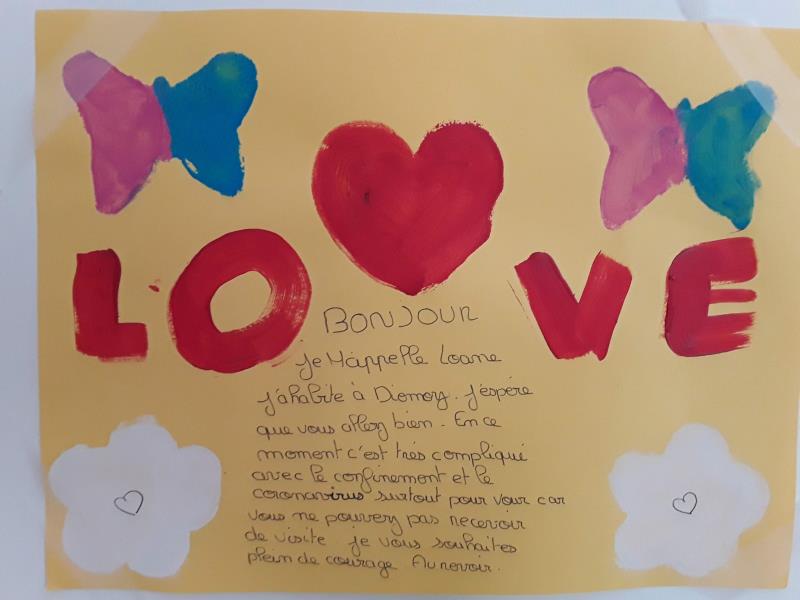 LOVE
BONJOUR
je M'appelle Loane
j'ahabite à Diemoz. j'éspére
que vous allez bien. En ce
moment c'est très compliqué
avec le confinement et le
coronavirus surtout pour vour car
vous ne pouvez pas recevoir
de visite. je vous souhaites
plein de courage Au revoir.